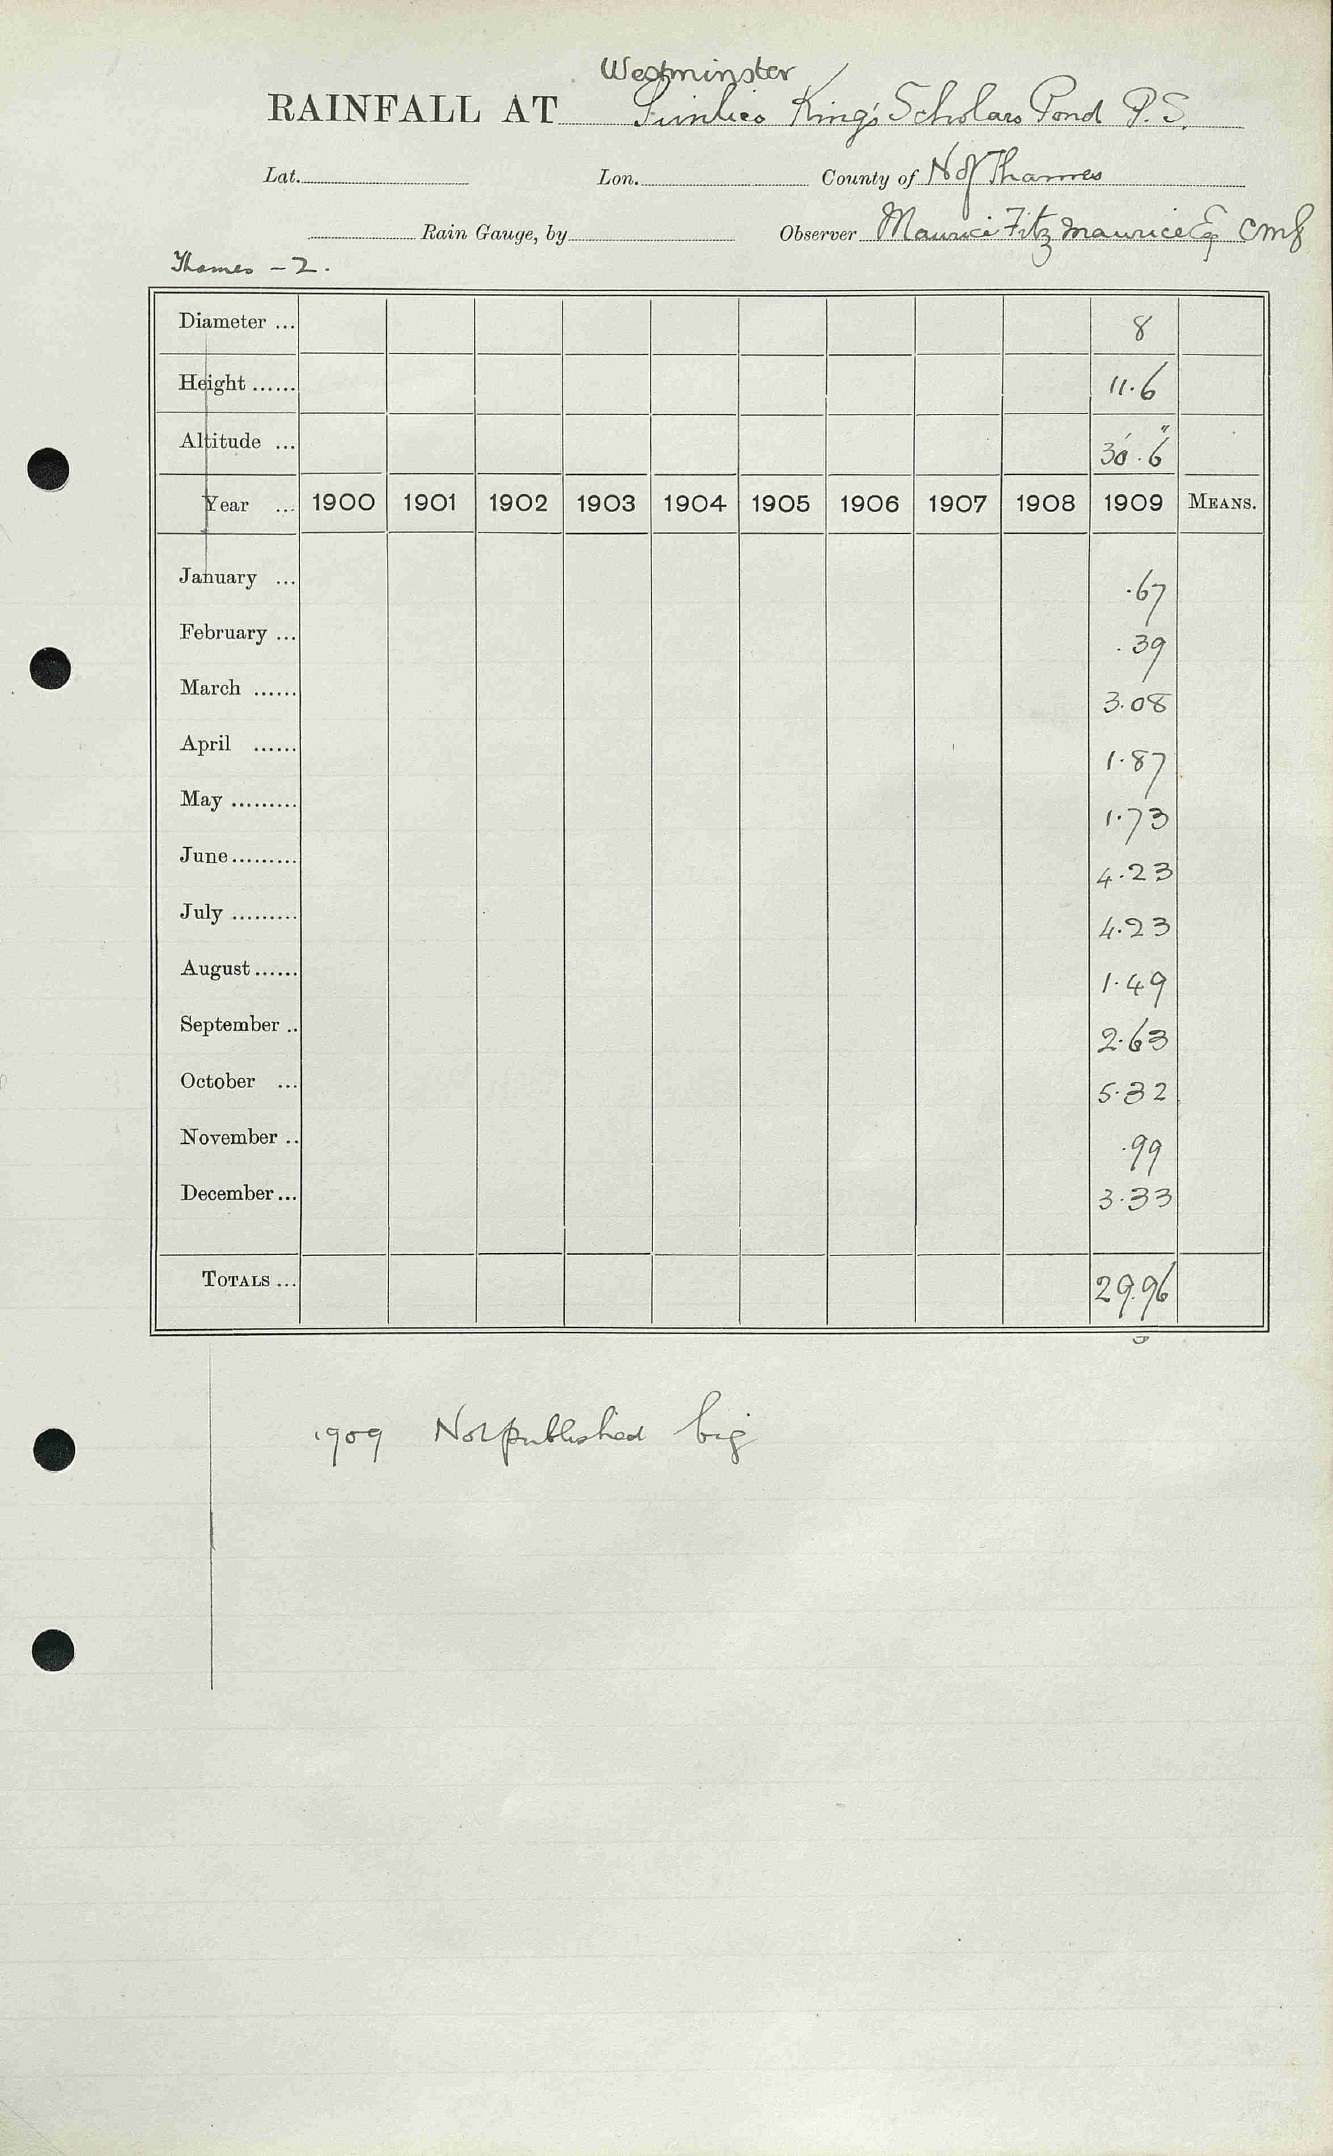 Westminster
RAINFALL AT Pimlico King's Scholars Pond P.S.
Lat. Lon. County of N of Thames
Rain Gauge, by Observer Maurice Fitzmaurice Esq CMG
Thames - 2.
Diameter ... 8
Height ...... 11.6
Altitude ... 30'.6"
Year ... 1900 1901 1902 1903 1904 1905 1906 1907 1908 1909 MEANS.
January ... .67
February ... .39
March ...... 3.08
April ...... 1.87
May ......... 1.73
June ......... 4.23
July ......... 4.23
August ...... 1.49
September .. 2.63
October ... 5.32
November .. .99
December ... 3.33
TOTALS ... 29.96
1909 Not published big